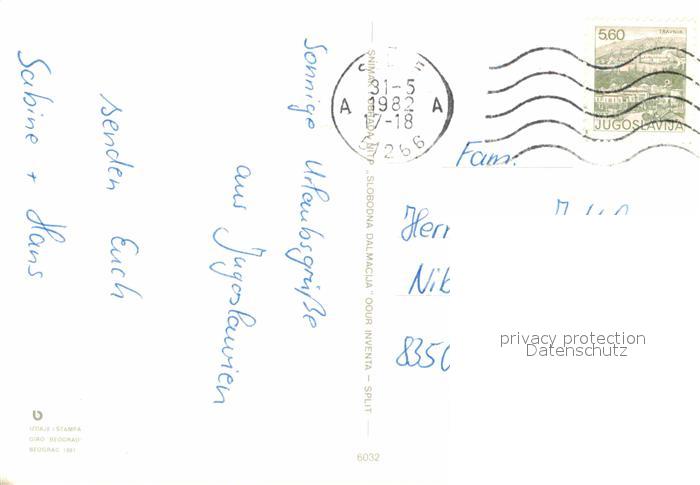 Sonnige Urlaubsgrüße
aus Jugoslawien
senden Euch
Sabine + Hans
31-5
A 1982 A
17-18
5,60
TRAVNIK
JUGOSLAVIJA
Fam.
Herr
Nik
8350
privacy protection
Datenschutz
„SLOBODNA DALMACIJA" OOUR INVENTA — SPLIT
IZDAJE I ŠTAMPA
GIRO BEOGRAD
BEOGRAD 1981
6032